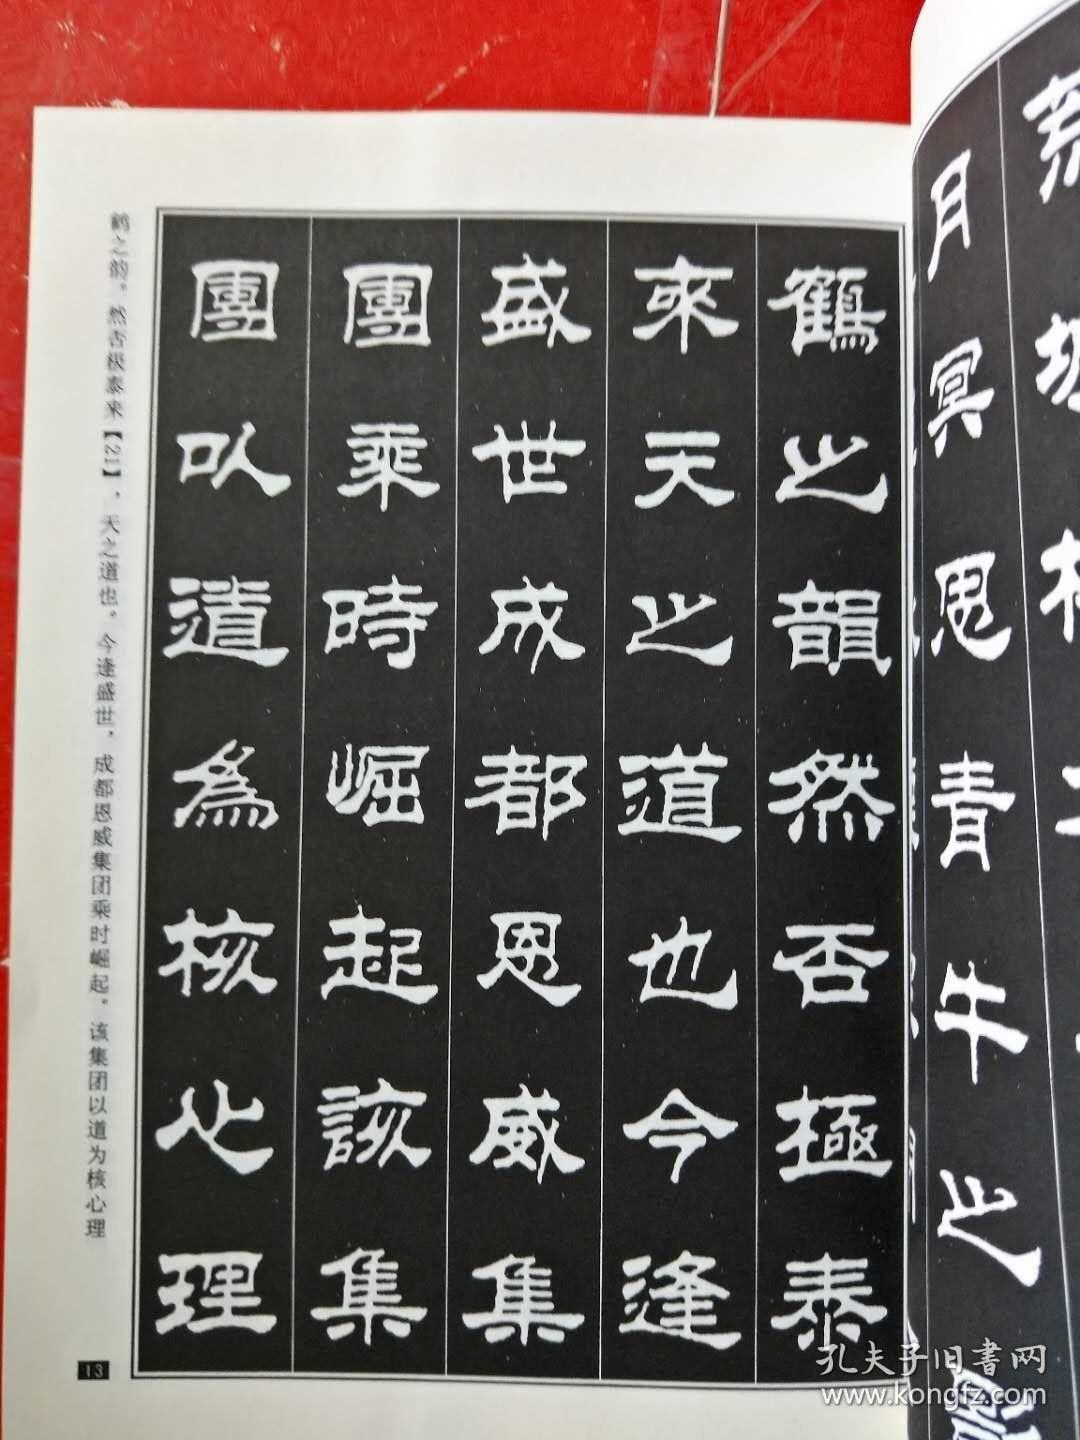 月冥思青牛之
鶴之韻然否極泰
來天之道也今逢
盛世成都恩威集
團乘時崛起該集
團以道為核心理
鹤之韵。然否极泰来【21】，天之道也。今逢盛世，成都恩威集团乘时崛起。该集团以道为核心理
13
孔夫子旧書网
www.kongfz.com